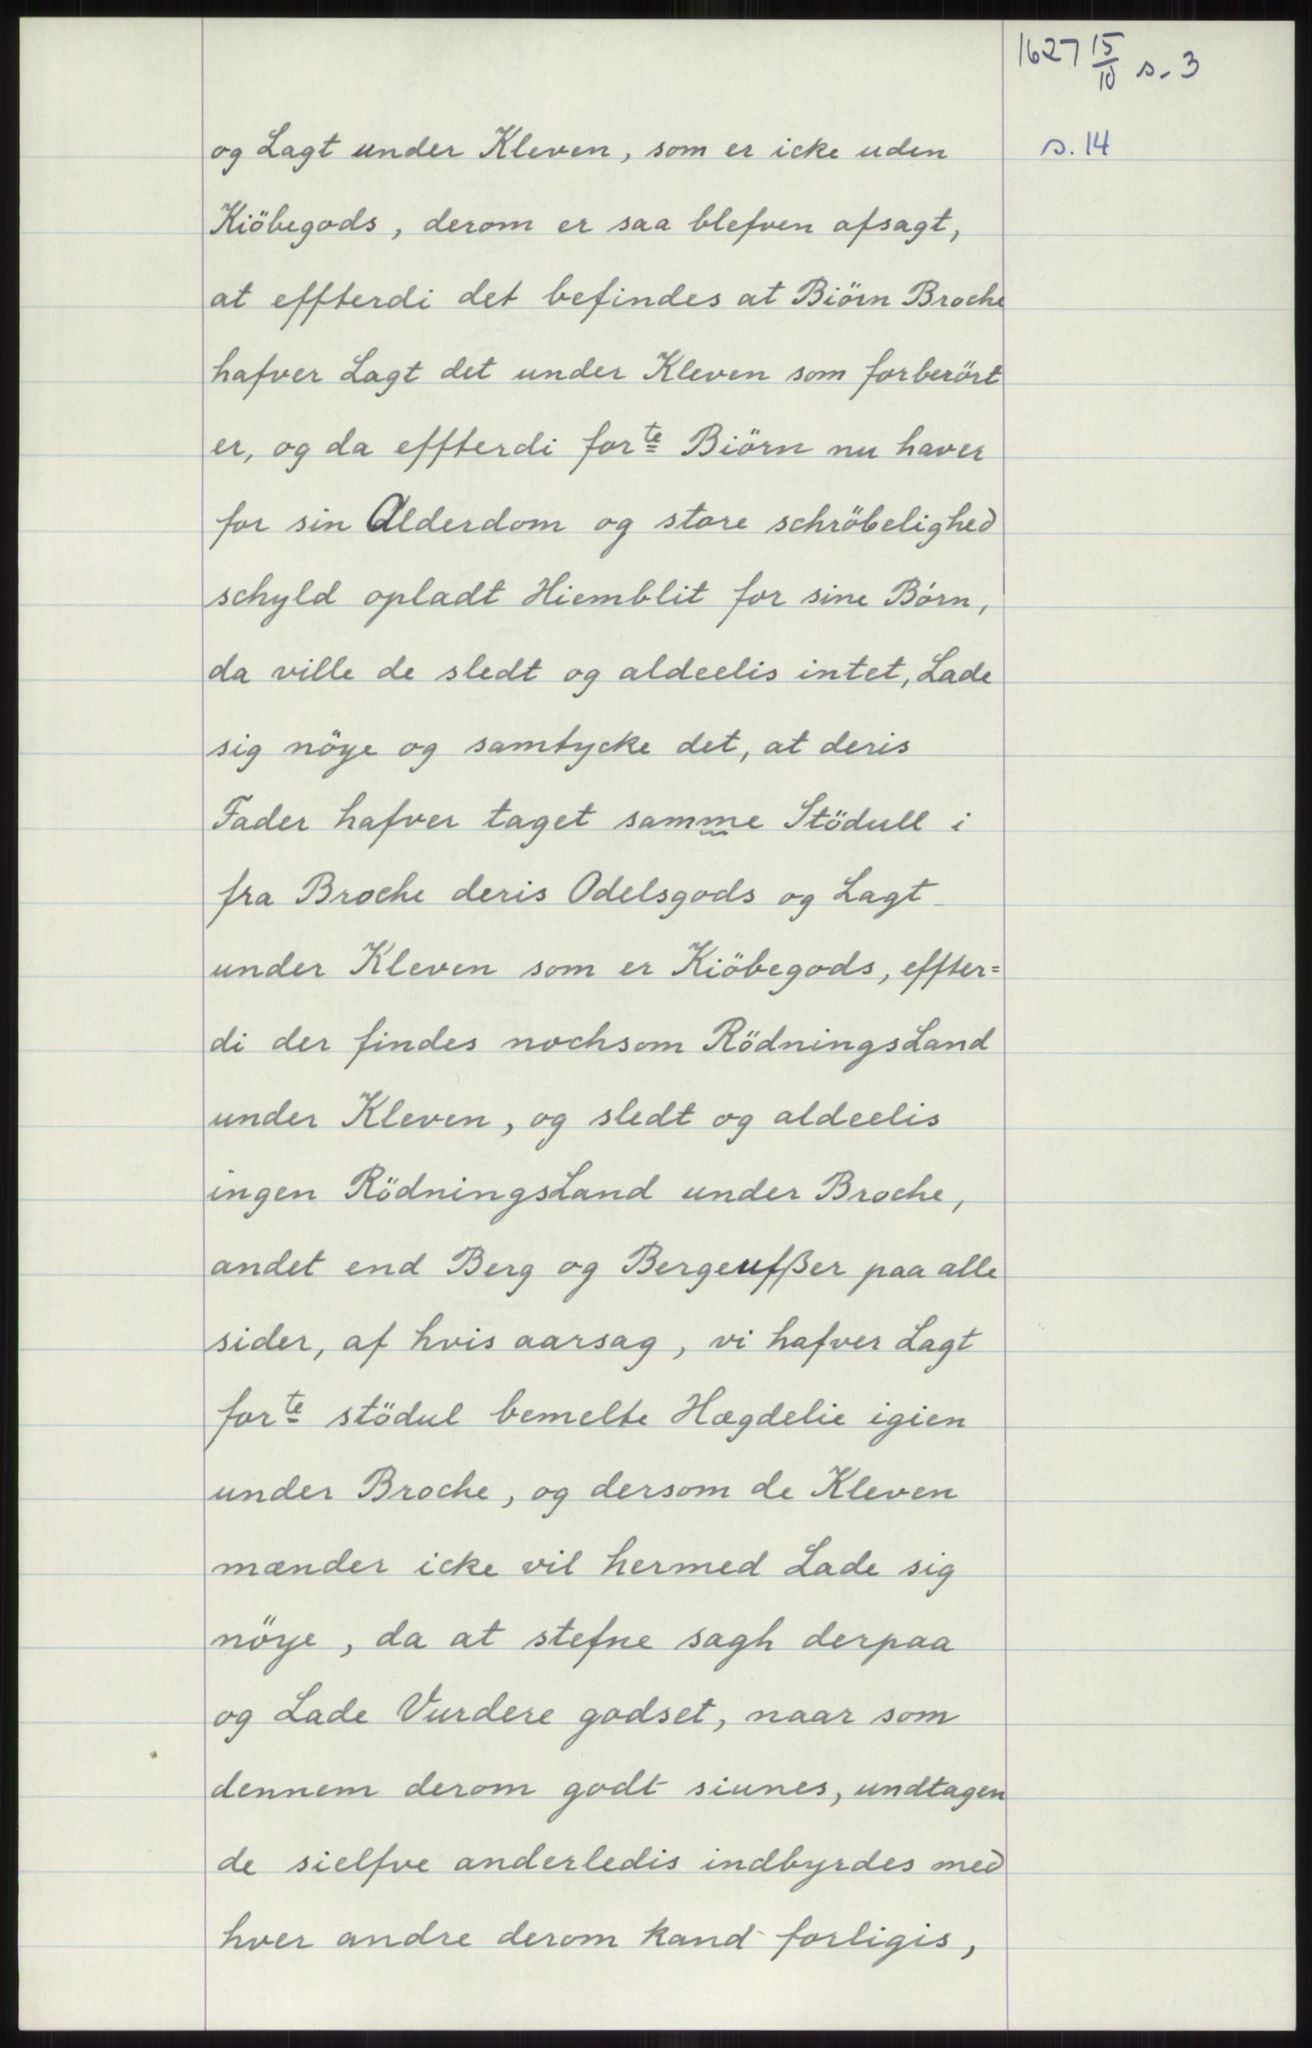 1627 15/10 s. 3
s. 14
og Lagt under Kleven, som er icke uden
Kiöbegods, derom er saa blefven afsagt,
at effterdi det befindes at Biörn Broche
hafver Lagt det under Kleven som forberört
er, og da effterdi forte Biörn nu haver
for sin Alderdom og store schröbelighed
schyld opladt Hiemblit for sine Börn,
da ville de sledt og aldeelis intet, Lade
sig nöye og samtycke det, at deris
Fader hafver taget samme Stödull i
fra Broche deris Odelsgods og Lagt
under Kleven som er Kiöbegods, effter=
di der findes nochsom RödningsLand
under Kleven, og sledt og aldeelis
ingen RödningsLand under Broche,
andet end Berg og Bergeufßer paa alle
sider, af hvis aarsag, vi hafver Lagt
forte stödul bemelte Hægdelie igien
under Broche, og dersom de Kleven
mænder icke vil hermed Lade sig
nöye, da at stefne sagh derpaa
og Lade Vurdere godset, naar som
dennem derom godt siunes, undtagen
de sielfve anderledis indbyrdes med
hver andre derom kand forligis,